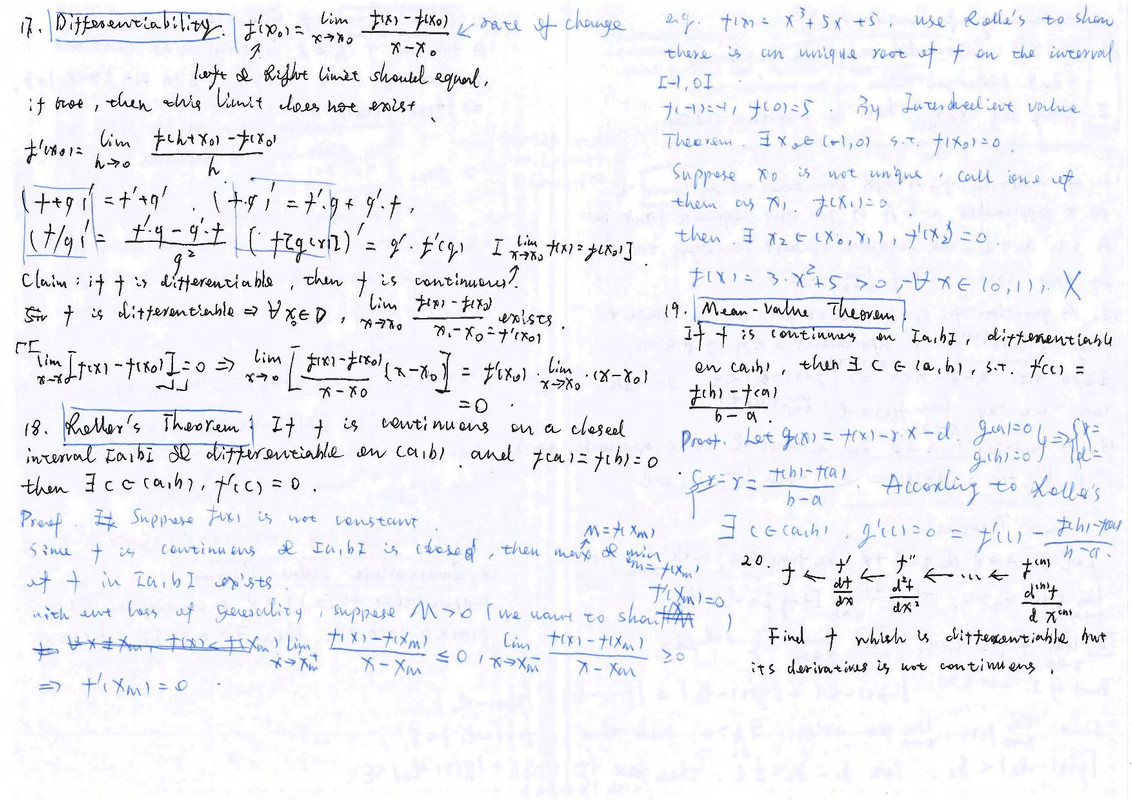 17. Differentiability. f'(x0) = lim x→x0 (f(x) - f(x0))/(x - x0) ← rate of change
↗
left & Right limit should equal,
if not, then this limit does not exist
f'(x0) = lim h→0 (f(h+x0) - f(x0))/h
(f+g)' = f'+g'. (f·g)' = f'·g + g'·f,
(f/g)' = (f'·g - g'·f)/g² (f[g(x)])' = g'·f'(g) [lim x→x0 f(x) = f(x0)]
Claim: if f is differentiable, then f is continuous.
f is differentiable ⇒ ∀x0∈D, lim x→x0 (f(x) - f(x0))/(x - x0) = f'(x0) exists.
lim x→x0 [f(x) - f(x0)] = 0 ⇒ lim x→0 [(f(x)-f(x0))/(x-x0) (x-x0)] = f'(x0) · lim x→x0 · (x-x0)
= 0.
18. Roller's Theorem If f is continuous on a closed
interval [a,b] & differentiable on (a,b). and f(a) = f(b) = 0
then ∃ c∈(a,b), f'(c) = 0.
Proof. If Suppose f(x) is not constant.
Sine f is continuous & [a,b] is closed, then max & min
M = f(xM)
m = f(xm)
of f in [a,b] exists
with out loss of generility, suppose M>0 (we want to show f'(xM)=0)
lim x→xM (f(x) - f(xM))/(x - xM) ≤ 0, lim x→xM (f(x) - f(xM))/(x - xM) ≥ 0
⇒ f'(xM) = 0.
e.g. f(x) = x³+5x+5, use Rolle's to show
there is an unique root of f on the interval
[-1,0]
f(-1)=-1, f(0)=5. By Intermedient value
Theorem. ∃ x0∈(-1,0) s.t. f(x0)=0.
Suppose x0 is not unique, call one of
them as x1, f(x1)=0
then ∃ x2∈(x0,x1), f'(x2)=0.
f(x) = 3·x²+5 >0, ∀x∈(0,1). X
19. Mean-value Theorem
If f is continues on [a,b], differentiable
on (a,b), then ∃ c∈(a,b), s.t. f'(c) =
(f(b) - f(a))/(b - a).
Proof. Let g(x) = f(x)-r·x-d. g(a)=0 g(b)=0 } ⇒ { r= d=
r = (f(b)-f(a))/(b-a). According to Rolle's
∃ c∈(a,b), g'(c)=0 = f'(c) - (f(b)-f(a))/(b-a).
20. f ← f' ← f'' ← ... ← f⁽ⁿ⁾
df/dx d²f/dx² d⁽ⁿ⁾f/dx⁽ⁿ⁾
Find f which is differentiable but
its derivatives is not continuous